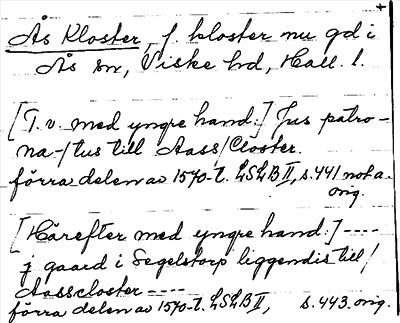 +
Ås Kloster, f. kloster nu gd i
Ås sn, Viske hd, Hall. l.
[T.v. med yngre hand:] Jus patro-
na-/tus till Aass/Closter.
förra delen av 1570-t. LSLB II, s. 441 nota.
orig.
[Härefter med yngre hand:] ----
j gaard i Segelstorp liggendis till/
Aasscloster ----
förra delen av 1570-t. LSLB II, s. 443. orig.